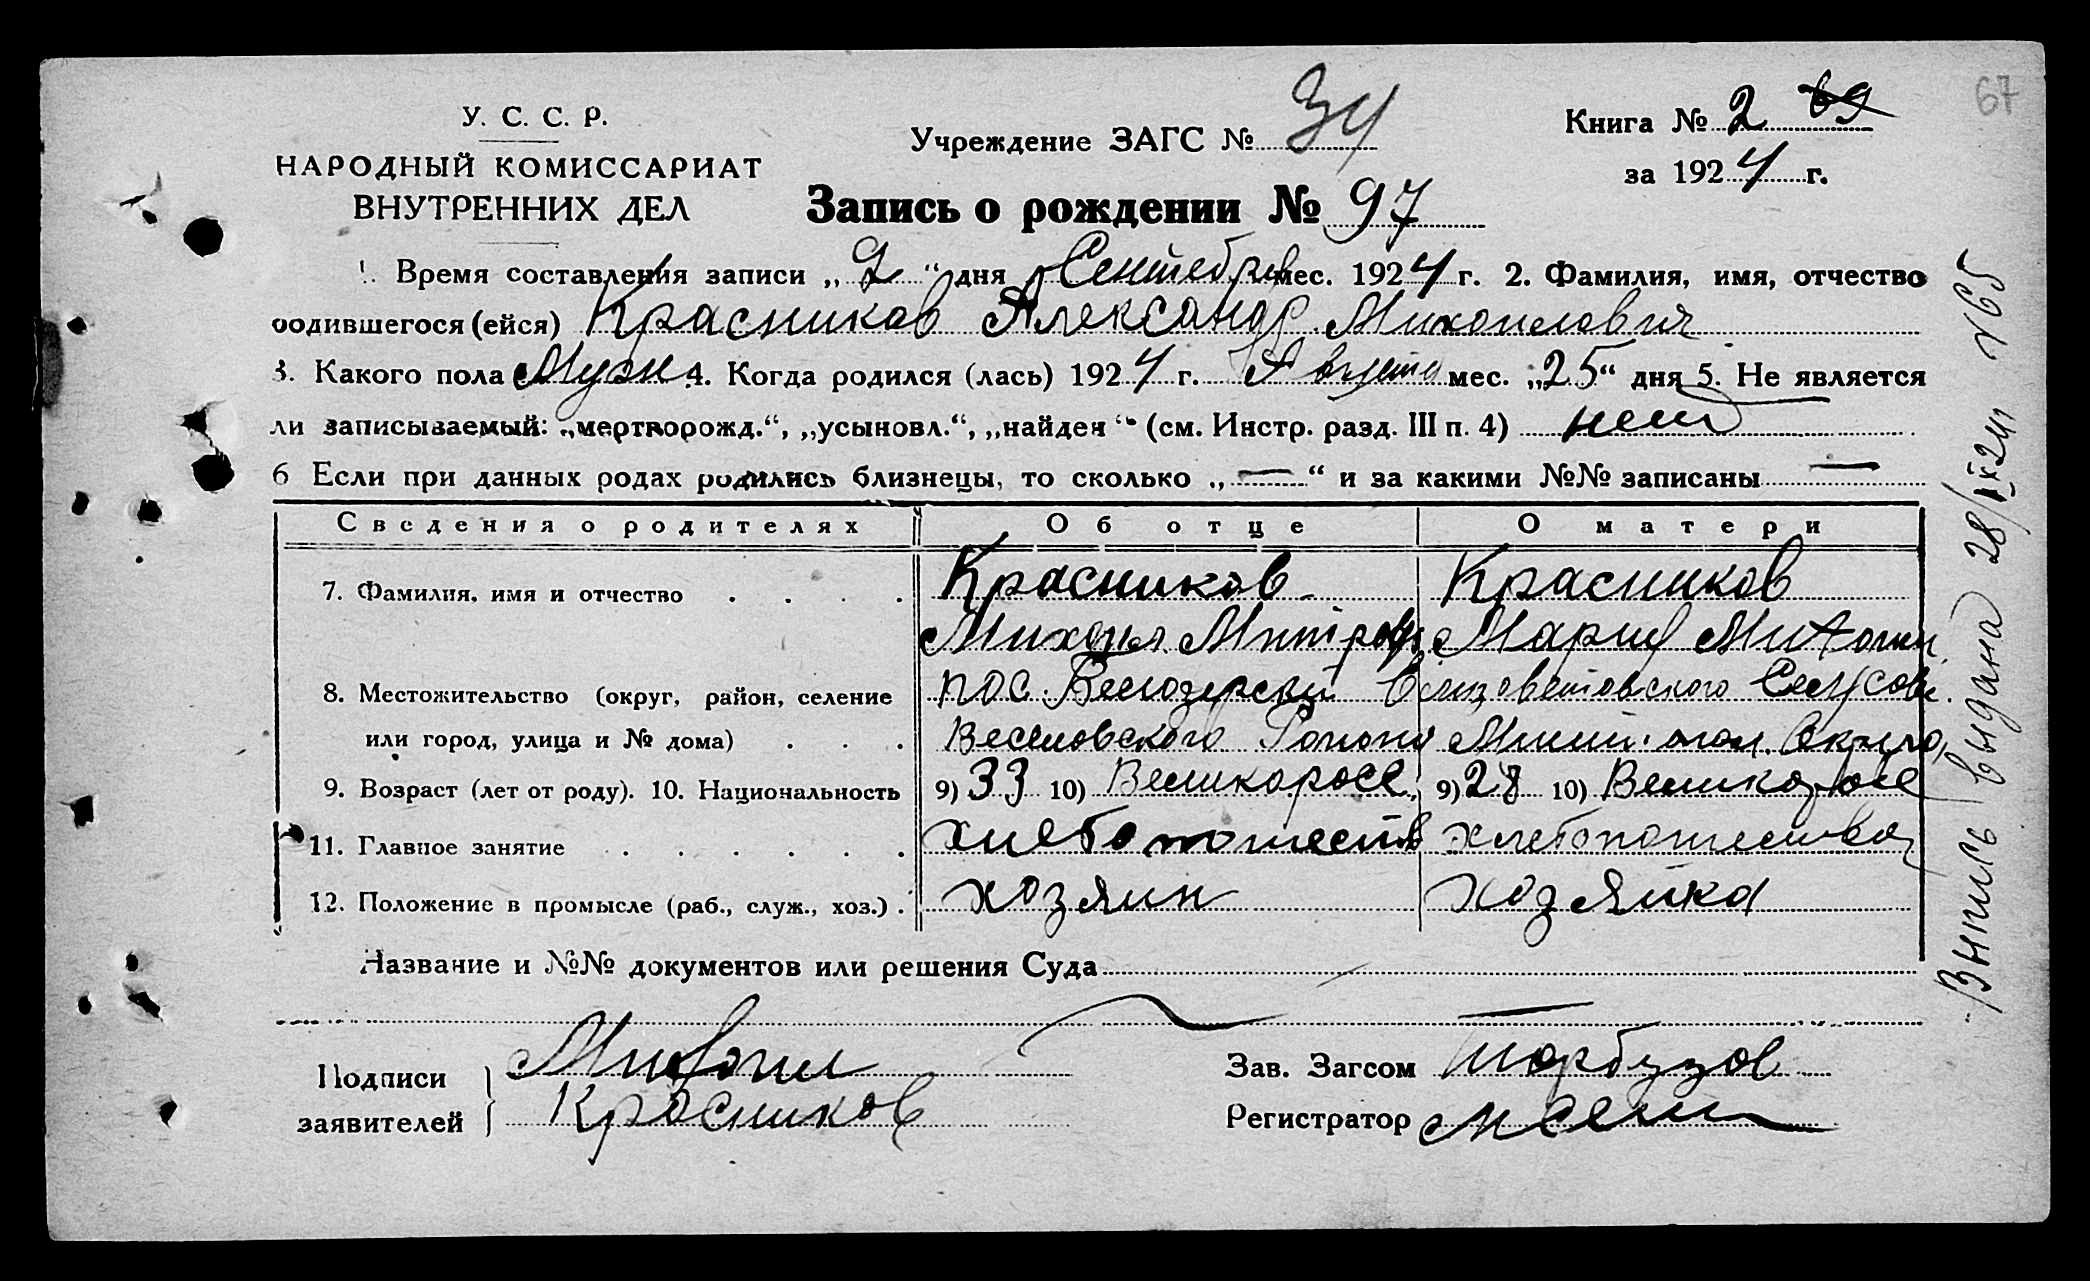 У. С. С. Р.
НАРОДНЫЙ КОМИССАРИАТ
ВНУТРЕННИХ ДЕЛ
Учреждение ЗАГС № 34
Книга № 2 69
67
за 1924 г.
Запись о рождении № 97
1. Время составления записи „ 2 “ дня Сентебров мес. 1924 г. 2. Фамилия, имя, отчество
родившегося (ейся) Красников Александр Михоилович
3. Какого пола Муж 4. Когда родился (лась) 1924 г. Августа мес. „25“ дня 5. Не является
ли записываемый: „мертворожд.“, „усыновл.“, „найден“ (см. Инстр. разд. III п. 4) нет
6 Если при данных родах родились близнецы, то сколько „—“ и за какими №№ записаны —
Сведения о родителях Об отце О матери
7. Фамилия, имя и отчество . . . . Красников Красников
Михоил Мария
8. Местожительство (округ, район, селение пос. Белозерский Елизоветовского
или город, улица и № дома) . . . Веселовского Мелит.
9. Возраст (лет от роду). 10. Национальность 9) 33 10) Великоросс 9) 28 10) Великоросс
11. Главное занятие . . . . . . хлебопошеств
12. Положение в промысле (раб., служ., хоз.) . хозяин хозяйка
Название и №№ документов или решения Суда
Подписи заявителей Михоил
Красников
Зав. Загсом
Регистратор
Выпись выдана 28/IX 24г №65